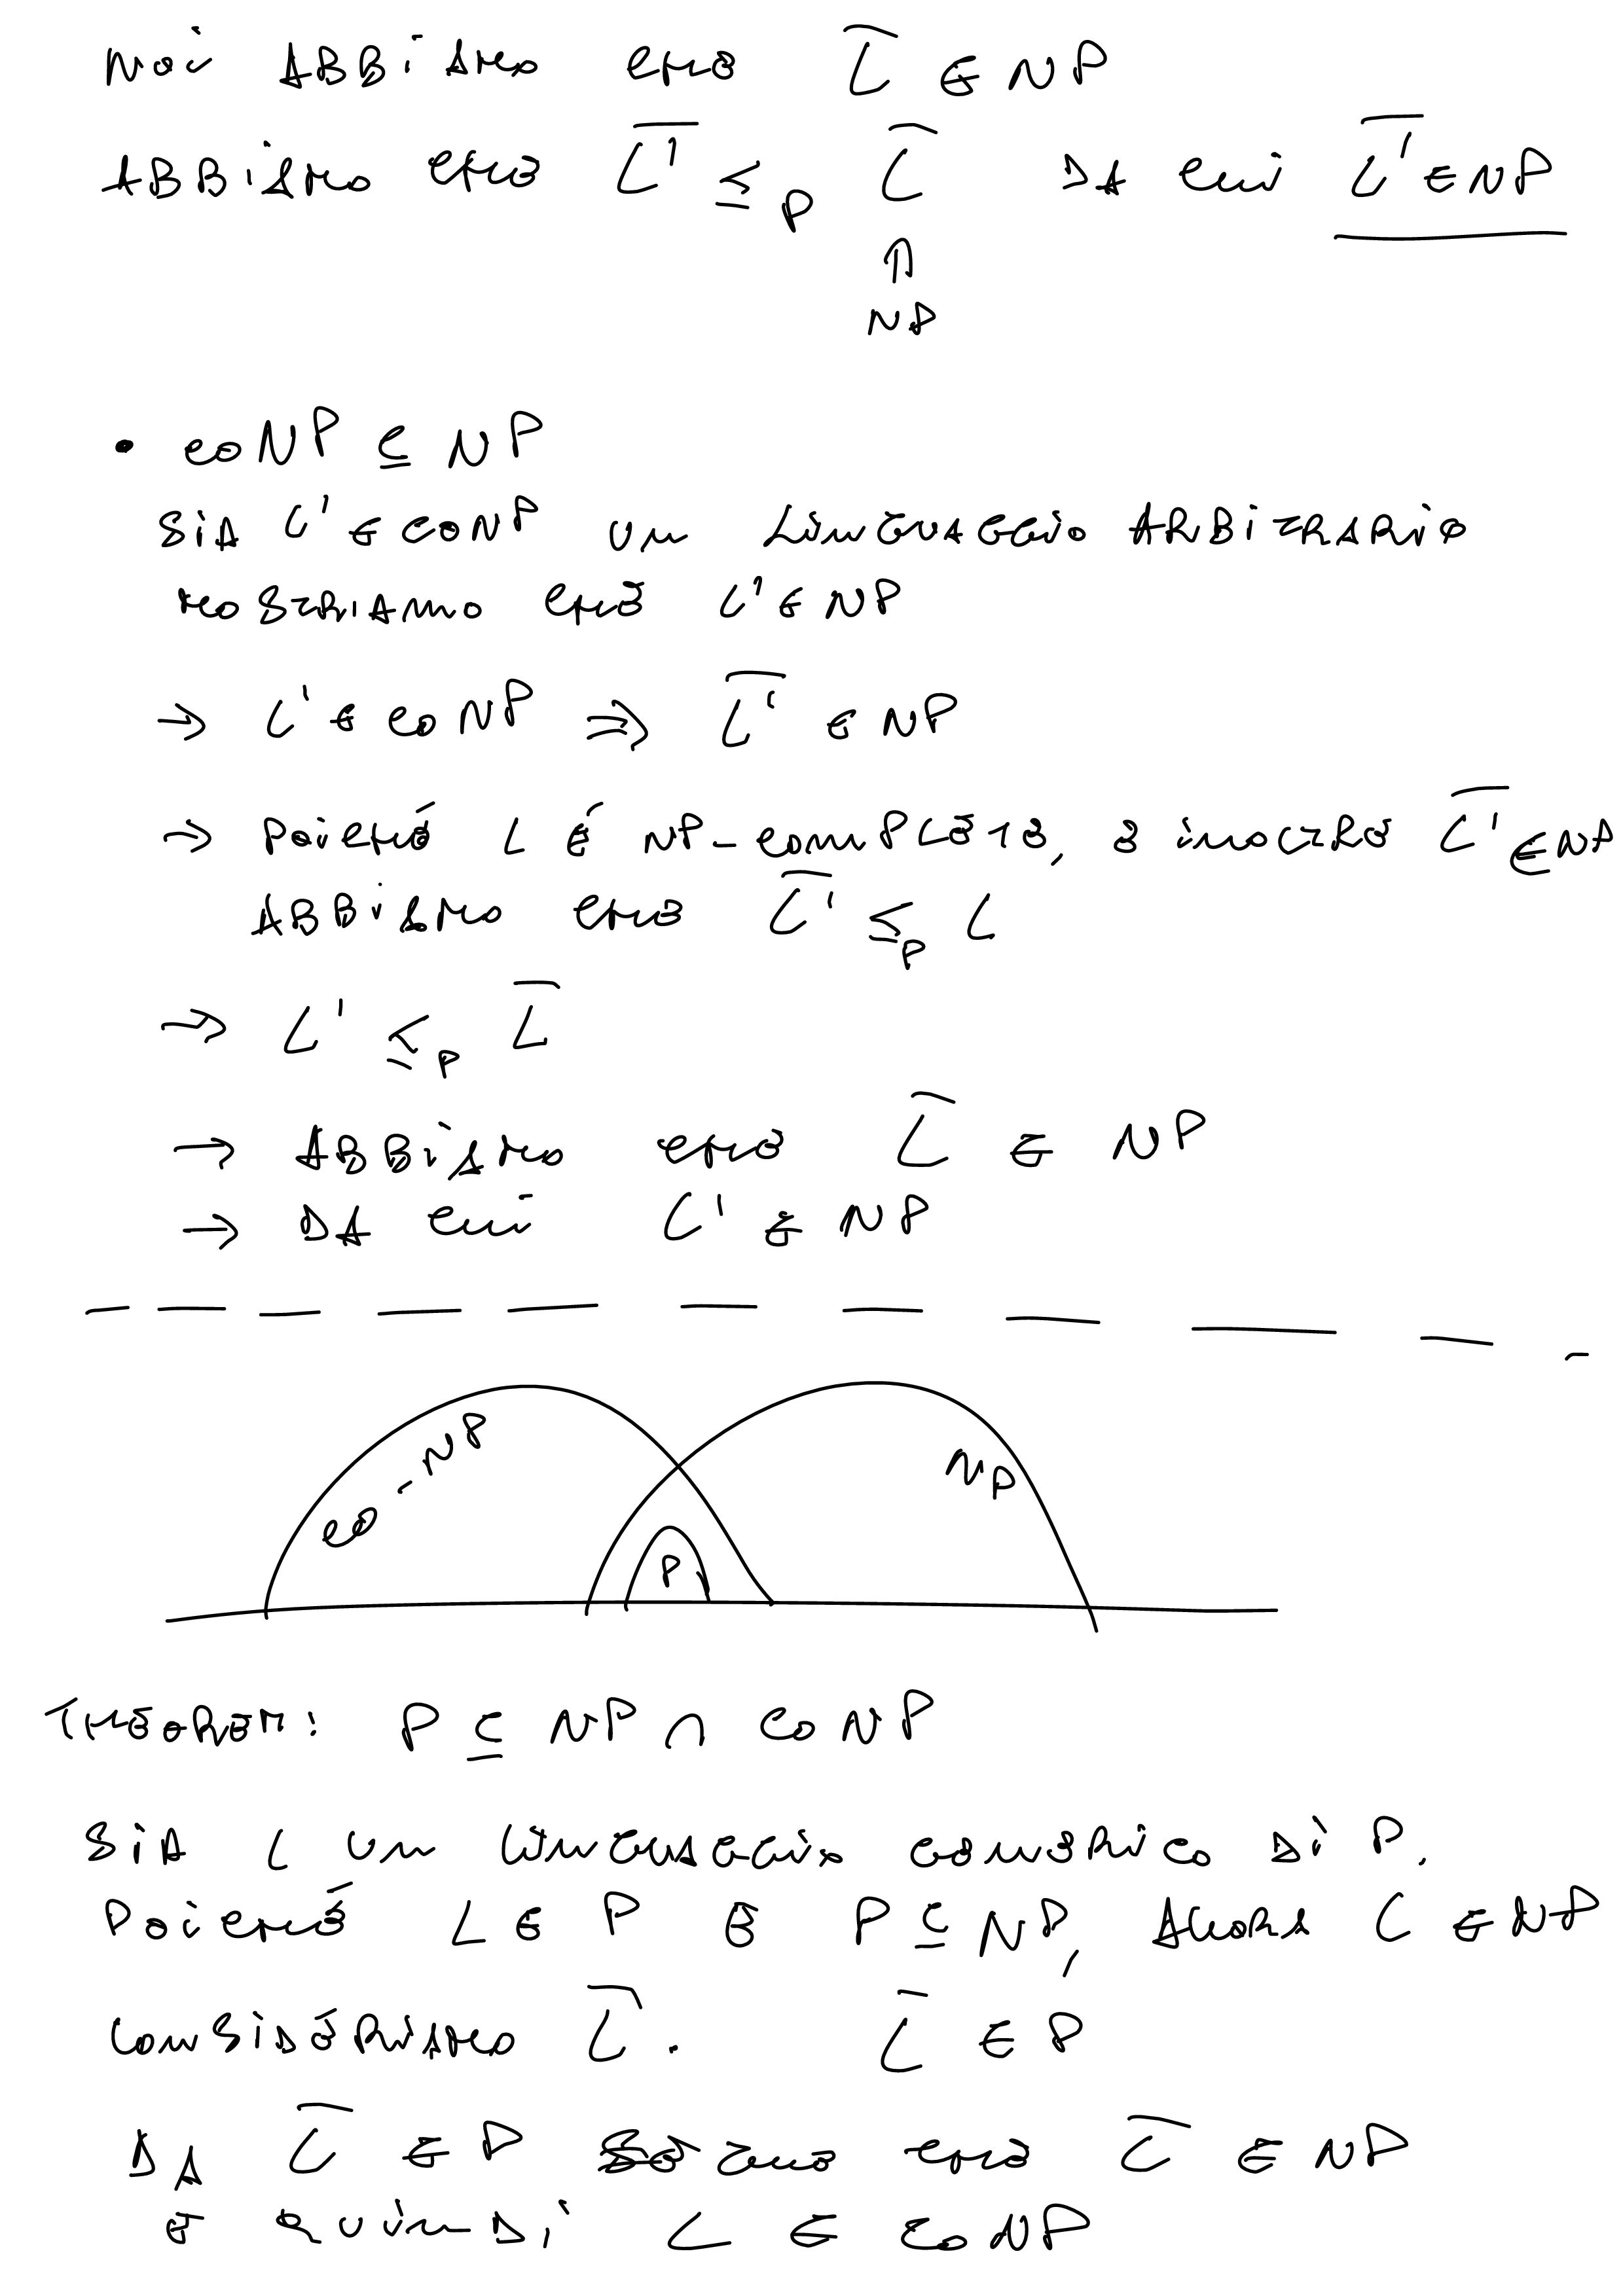 NOI ABBIAMO CHE L̅ ∈ NP
ABBIAMO CHE L̅'̅ ≤ₚ L̅ DA CUI L̅'̅ ∈ NP
⇑
NP
• coNP ⊆ NP
SIA L' ∈ coNP UN LINGUAGGIO ARBITRARIO
MOSTRIAMO CHE L' ∈ NP
→ L' ∈ coNP ⇒ L̅'̅ ∈ NP
→ POICHÉ L É NP-COMPLETE, E INOLTRE L̅'̅ ∈ NP
ABBIAMO CHE L̅'̅ ≤ₚ L
→ L' ≤ₚ L̅
→ ABBIAMO CHE L̅ ∈ NP
→ DA CUI L' ∈ NP
co-NP
NP
P
THEOREM: P ⊆ NP ∩ coNP
SIA L UN LINGUAGGIO GENERICO DI P.
POICHÉ L ∈ P E P ⊆ NP, ALLORA L ∈ NP
CONSIDERIAMO L̅. L̅ ∈ P
DA L̅ ∈ P SEGUE CHE L̅ ∈ NP
E QUINDI L ∈ coNP